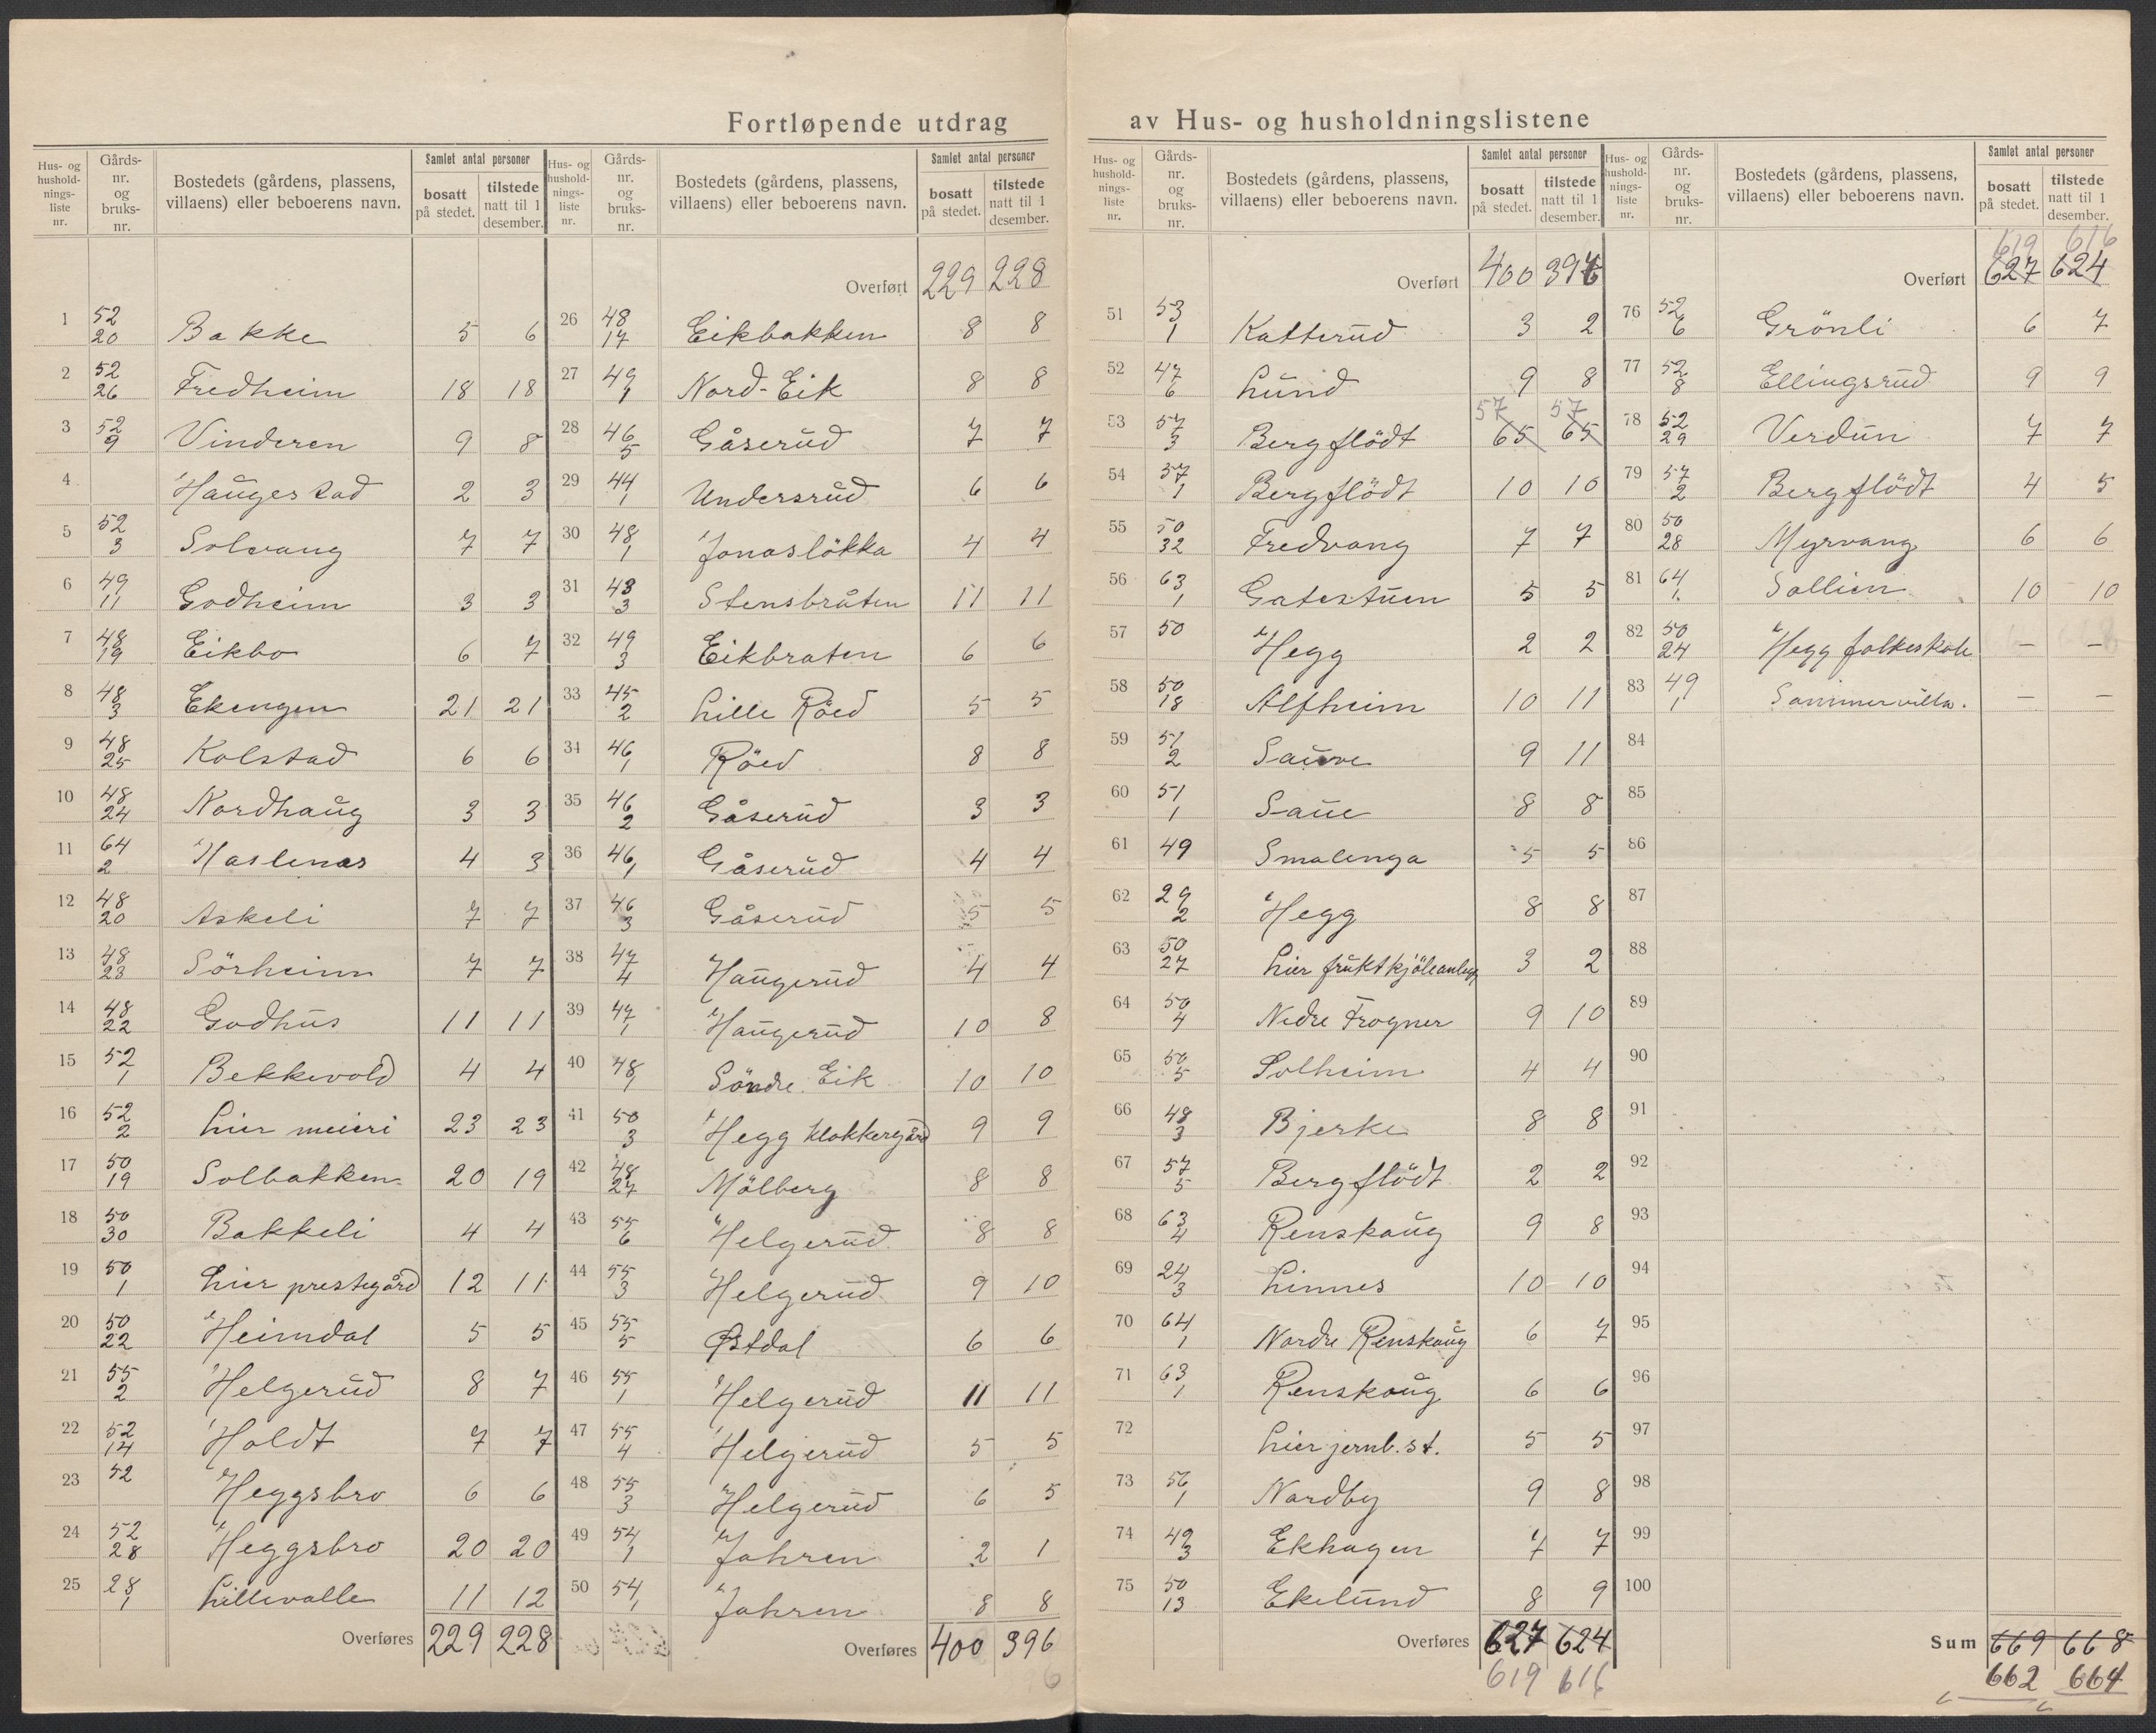 Fortløpende utdrag av Hus- og husholdningslistene
Hus- og hushold-nings-liste nr. | Gårds-nr. og bruks-nr. | Bostedets (gårdens, plassens, villaens) eller beboerens navn. | Samlet antal personer: bosatt på stedet. | tilstede natt til 1 desember.
1 52/20 Bakke 5 6
2 52/26 Fredheim 18 18
3 52/9 Vinderen 9 8
4 Haugestad 2 3
5 52/3 Solvang 7 7
6 49/11 Godheim 3 3
7 48/19 Eikbo 6 7
8 48/3 Ekengen 21 21
9 48/25 Kolstad 6 6
10 48/24 Nordhaug 3 3
11 64/2 Haslenes 4 3
12 48/20 Askeli 7 7
13 48/23 Sörheim 7 7
14 48/22 Godhus 11 11
15 52/1 Bekkevold 4 4
16 52/2 Lier meieri 23 23
17 50/19 Solbakken 20 19
18 50/30 Bakkeli 4 4
19 50/1 Lier prestegård 12 11
20 50/22 Heimdal 5 5
21 55/2 Helgerud 8 7
22 52/14 Holdt 7 7
23 52 Heggsbro 6 6
24 52/28 Heggsbro 20 20
25 28/1 Lillevalle 11 12
Overføres 229 228
Hus- og hushold-nings-liste nr. | Gårds-nr. og bruks-nr. | Bostedets (gårdens, plassens, villaens) eller beboerens navn. | Samlet antal personer: bosatt på stedet. | tilstede natt til 1 desember.
Overført 229 228
26 48/17 Eikbakken 8 8
27 49/1 Nord-Eik 8 8
28 46/5 Gåserud 7 7
29 44/1 Undersrud 6 6
30 48/1 Jonaslökka 4 4
31 48/3 Stensbråten 11 11
32 49/3 Eikbraten 6 6
33 45/2 Lille Röed 5 5
34 46/1 Röed 8 8
35 46/2 Gåserud 3 3
36 46/1 Gåserud 4 4
37 46/3 Gåserud 5 5
38 47/4 Haugerud 4 4
39 47/1 Haugerud 10 8
40 48/1 Söndre Eik 10 10
41 50/3 Hegg klokkergård 9 9
42 48/27 Mölberg 8 8
43 55/6 Helgerud 8 8
44 55/3 Helgerud 9 10
45 55/5 Østdal 6 6
46 55/1 Helgerud 11 11
47 55/4 Helgerud 5 5
48 55/3 Helgerud 6 5
49 54/1 Jahren 2 1
50 54/1 Jahren 8 8
Overføres 400 396
Hus- og hushold-nings-liste nr. | Gårds-nr. og bruks-nr. | Bostedets (gårdens, plassens, villaens) eller beboerens navn. | Samlet antal personer: bosatt på stedet. | tilstede natt til 1 desember.
Overført 400 396
51 53/1 Katterud 3 2
52 47/6 Lund 9 8
57 57
53 57/3 Bergflödt 65 65
54 57/1 Bergflödt 10 10
55 50/32 Fredvang 7 7
56 63/1 Gatestuen 5 5
57 50 Hegg 2 2
58 50/18 Alfheim 10 11
59 51/2 Sauve 9 11
60 51/1 Saue 8 8
61 49 Smalenga 5 5
62 29/2 Hegg 8 8
63 50/27 Lier fruktkjöleanlegg 3 2
64 50/4 Nedre Frogner 9 10
65 50/5 Solheim 4 4
66 48/3 Bjerke 8 8
67 57/5 Bergflödt 2 2
68 63/4 Renskaug 9 8
69 24/3 Linnes 10 10
70 64/1 Nordre Renskaug 6 7
71 63/1 Renskaug 6 6
72 Lier jernb. st. 5 5
73 56/1 Nordby 9 8
74 49/3 Ekhagen 7 7
75 50/13 Ekelund 8 9
Overføres 627 624
619 616
Hus- og hushold-nings-liste nr. | Gårds-nr. og bruks-nr. | Bostedets (gårdens, plassens, villaens) eller beboerens navn. | Samlet antal personer: bosatt på stedet. | tilstede natt til 1 desember.
619 616
Overført 627 624
76 52/6 Grönli 6 7
77 52/8 Ellingsrud 9 9
78 52/29 Verdun 7 7
79 57/2 Bergflödt 4 5
80 50/28 Myrvang 6 6
81 64/1 Sollien 10 10
82 50/24 Hegg folkeskole – –
83 49/1 Sommervilla. – –
84
85
86
87
88
89
90
91
92
93
94
95
96
97
98
99
100
Sum 669 668
662 664